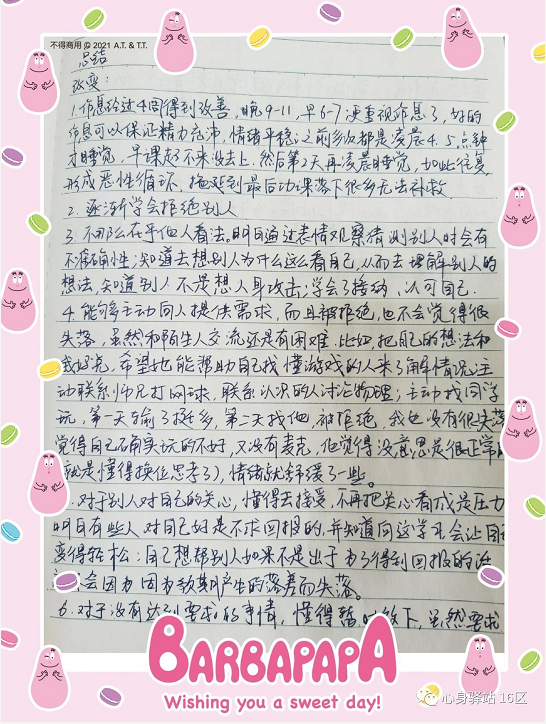 不得商用 © 2021 A.T. & T.T.
总结
改变:
1.作息经过4周得到改善,晚9-11,早6-7,更重视作息了,好的
作息可以保证精力充沛,情绪平稳;之前多次都是凌晨4.5.点钟
才睡觉,早课起不来没去上,然后第2天再凌晨睡觉,如此往复
形成恶性循环,拖延到最后功课落下很多无法补救
2. 逐渐学会拒绝别人
3. 不那么在乎他人看法。明白通过表情观察猜测别人时会有
不准确性;知道去想别人为什么这么看自己,从而去理解别人的
想法,知道别人不是想人身攻击;学会了接纳、认可自己.
4. 能够主动向人提供需求,而且被拒绝,也不会觉得很
失落,虽然和陌生人交流还是有困难.比如,把自己的想法和
说,希望他能帮助自己找懂游戏的人来了解情况;主
动联系师兄打网球,联系认识的人讨论物理;主动找同学
玩,第一天输了挺多,第二天找他被拒绝,我也没有很失落
觉得自己确实玩的不好,又没有麦克,他觉得没意思是很正常
就是懂得换位思考了),情绪就舒缓了一些。
.对于别人对自己的关心,懂得去接受,不再把关心看成是压力
明白有些人对自己好是不求回报的,并知道向这学习会让自己
变得轻松:自己想帮别人如果不是出于为了得到回报的
会因为因为教期产生的落差而失落。
6.对于没有达到要求的事情,懂得暂时放下,虽然要求
BARBAPAPA
Wishing you a sweet day!
心身驿站 16区